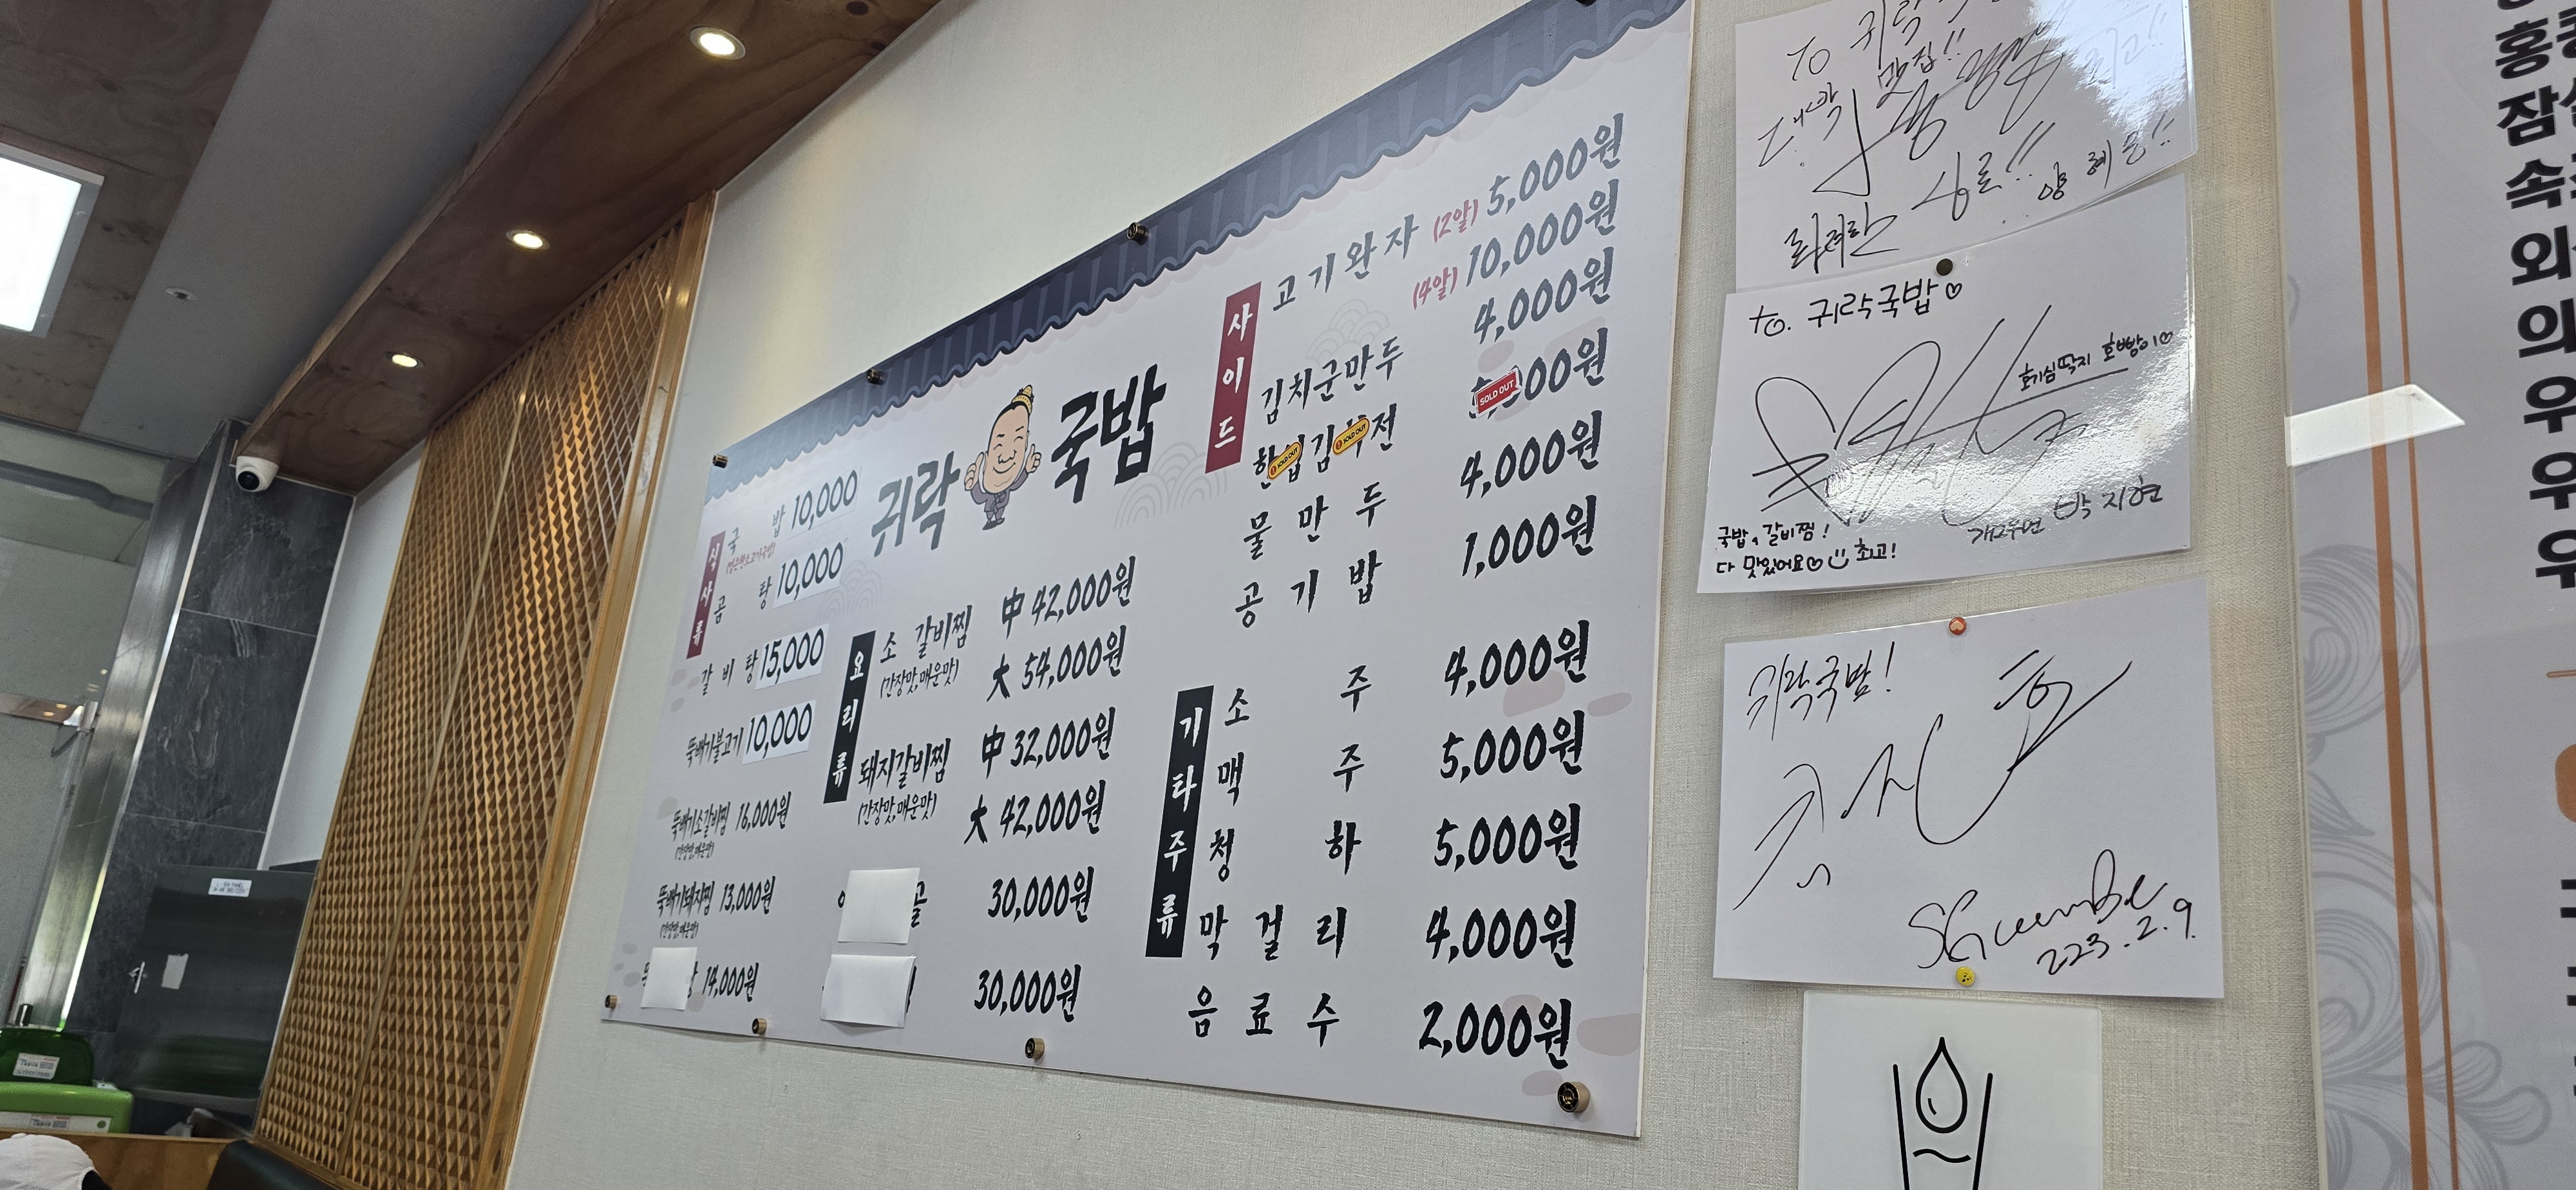 귀락 국밥
식사류
국 밥 10,000
곰 탕 10,000
갈 비 탕 15,000
뚝배기불고기 10,000
뚝배기소갈비찜 16,000원
(간장맛,매운맛)
뚝배기돼지찜 13,000원
(간장맛,매운맛)
14,000원
요리류
소 갈비찜 中 42,000원
(간장맛,매운맛) 大 54,000원
돼지갈비찜 中 32,000원
(간장맛,매운맛) 大 42,000원
골 30,000원
30,000원
사이드
고기완자 (2알) 5,000원
(4알) 10,000원
김치군만두 4,000원
SOLD OUT
SOLD OUT
SOLD OUT
물 만 두 4,000원
공 기 밥 1,000원
기타주류
소 주 4,000원
맥 주 5,000원
청 하 5,000원
막 걸 리 4,000원
음 료 수 2,000원
To 귀락
대박 맛집!!
양 혜
to. 귀락국밥♡
호기심딱지 호빵이♡
국밥, 갈비찜!
다 맛있어요♡ 최고!
개그우먼 박지현
귀락국밥!
2023.2.9.
홍
잠
속
외
의
우
우
우